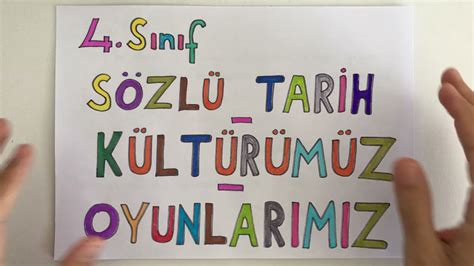 4. Sınıf
SÖZLÜ TARİH
KÜLTÜRÜMÜZ
OYUNLARIMIZ